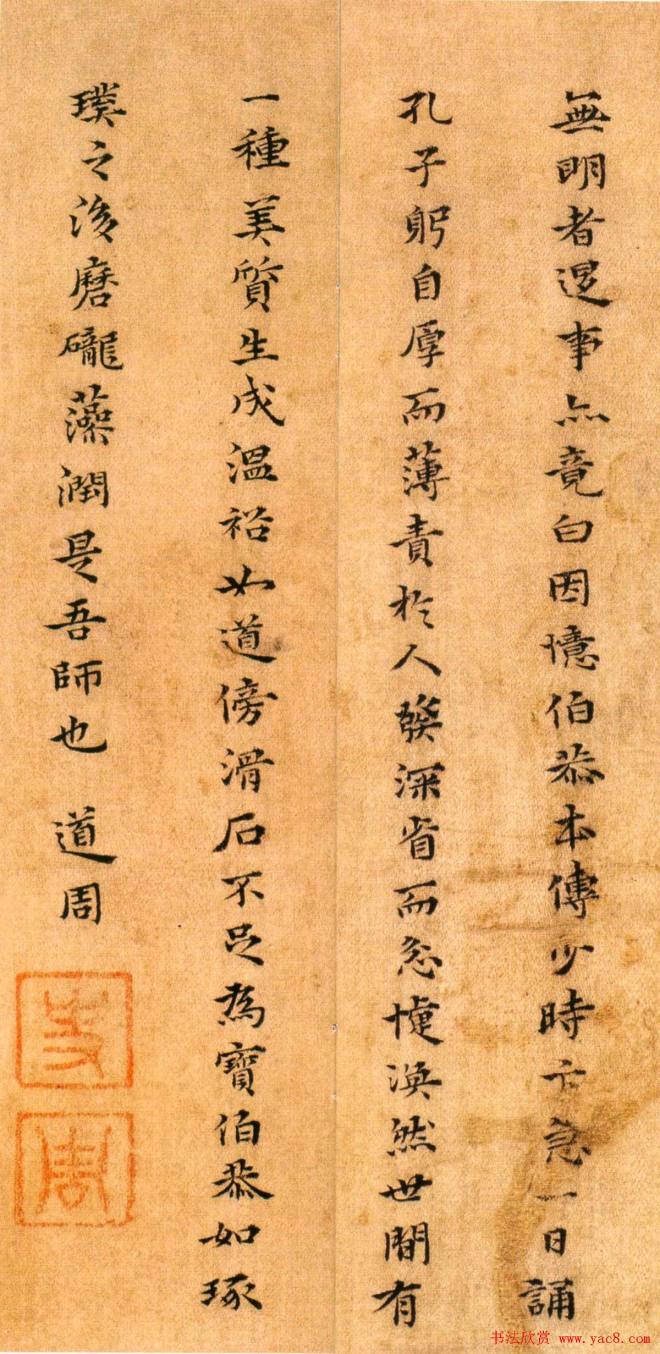 無明者遇事亦竟白因憶伯恭本傳少時卞急一日誦
孔子躬自厚而薄責於人發深省而忿懥渙然世間有
一種美質生成溫裕如道傍滑石不足為寶伯恭如琢
璞之後磨礲藻潤是吾師也 道周
书法欣赏 www.yac8.com